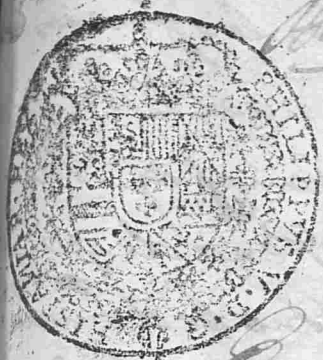 PHILIPPUS·V·D·G
HISPANIAR·REX